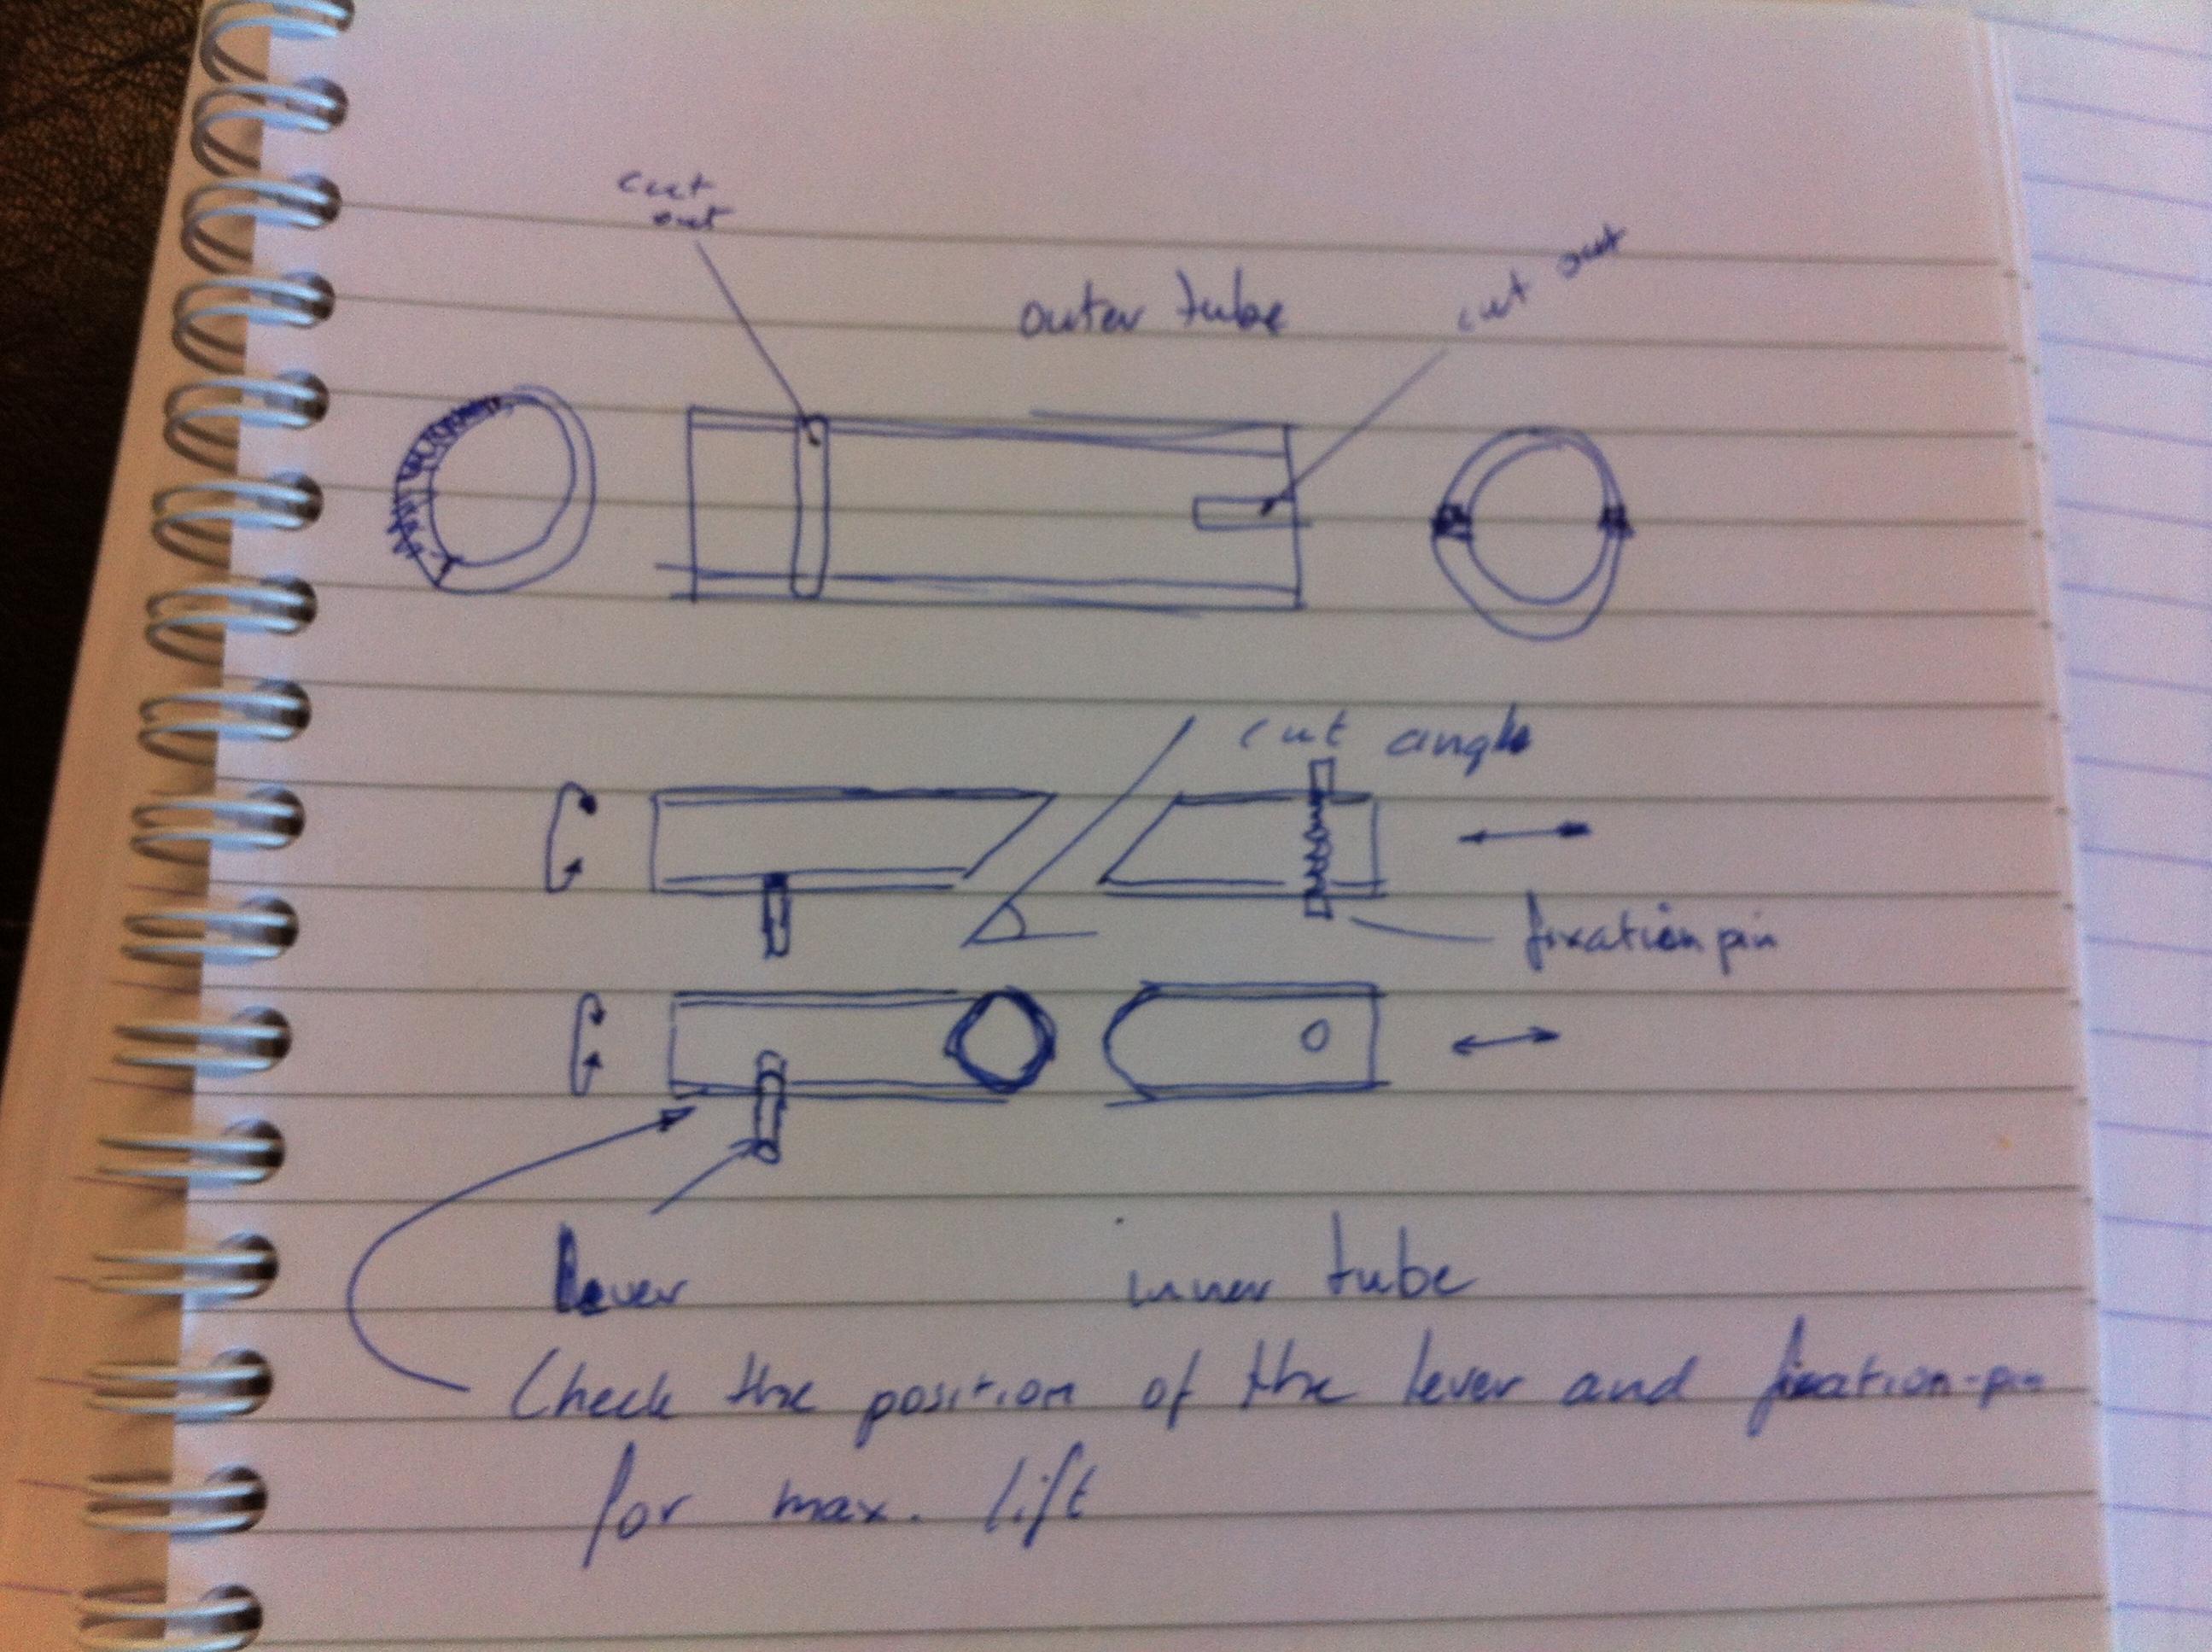 cut
out
outer tube
cut out
cut angle
fixation pin
Lever
inner tube
Check the position of the lever and fixation-pin
for max. lift